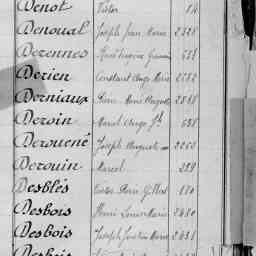 Denot Victor 814
Denoual Joseph Jean Marie 2328
Derennes René Eugène 633
Derien Constant Ange Marie 2532
Derniaux Pierre Marie Auguste 2858
Deroin Marcel Ange Jh 638
Derouené Joseph Auguste 2203
Derouin Marcel 239
Desblés Victor Pierre Gilbert 180
Desbois Henri Louis Marie 2480
Desbois Joseph Marie 2431
Desbois